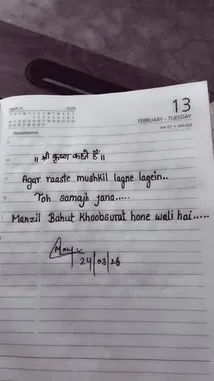 MARCH 2024
13
FEBRUARY - TUESDAY
Appointments
|| श्री कृष्ण कहते हैं ||
Agar raaste mushkil lagne lagein..
Toh samajh jana.....
Manzil Bahut Khoobsurat hone wali hai.....
24/03/26